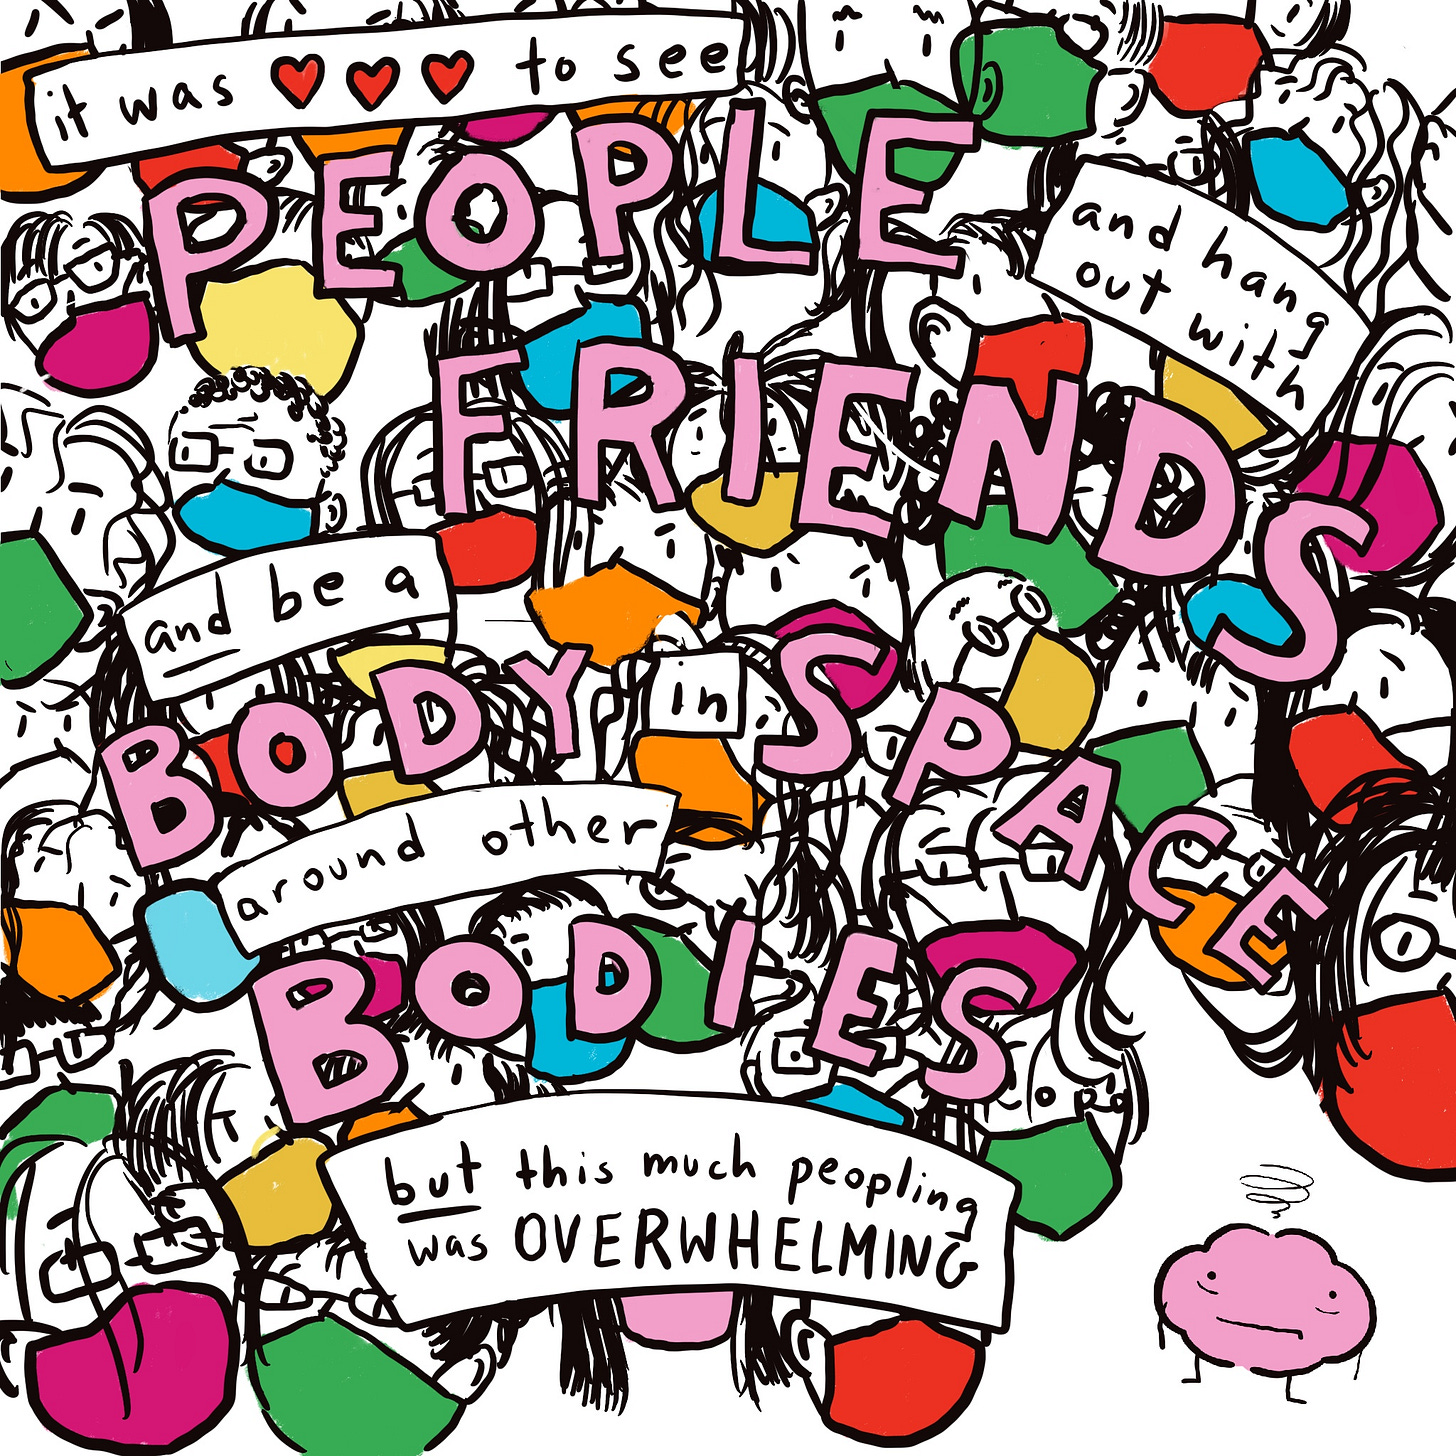 it was ♥♥♥ to see
PEOPLE
and hang
out with
FRIENDS
and be a
BODY in SPACE
around other
BODIES
but this much peopling
was OVERWHELMING